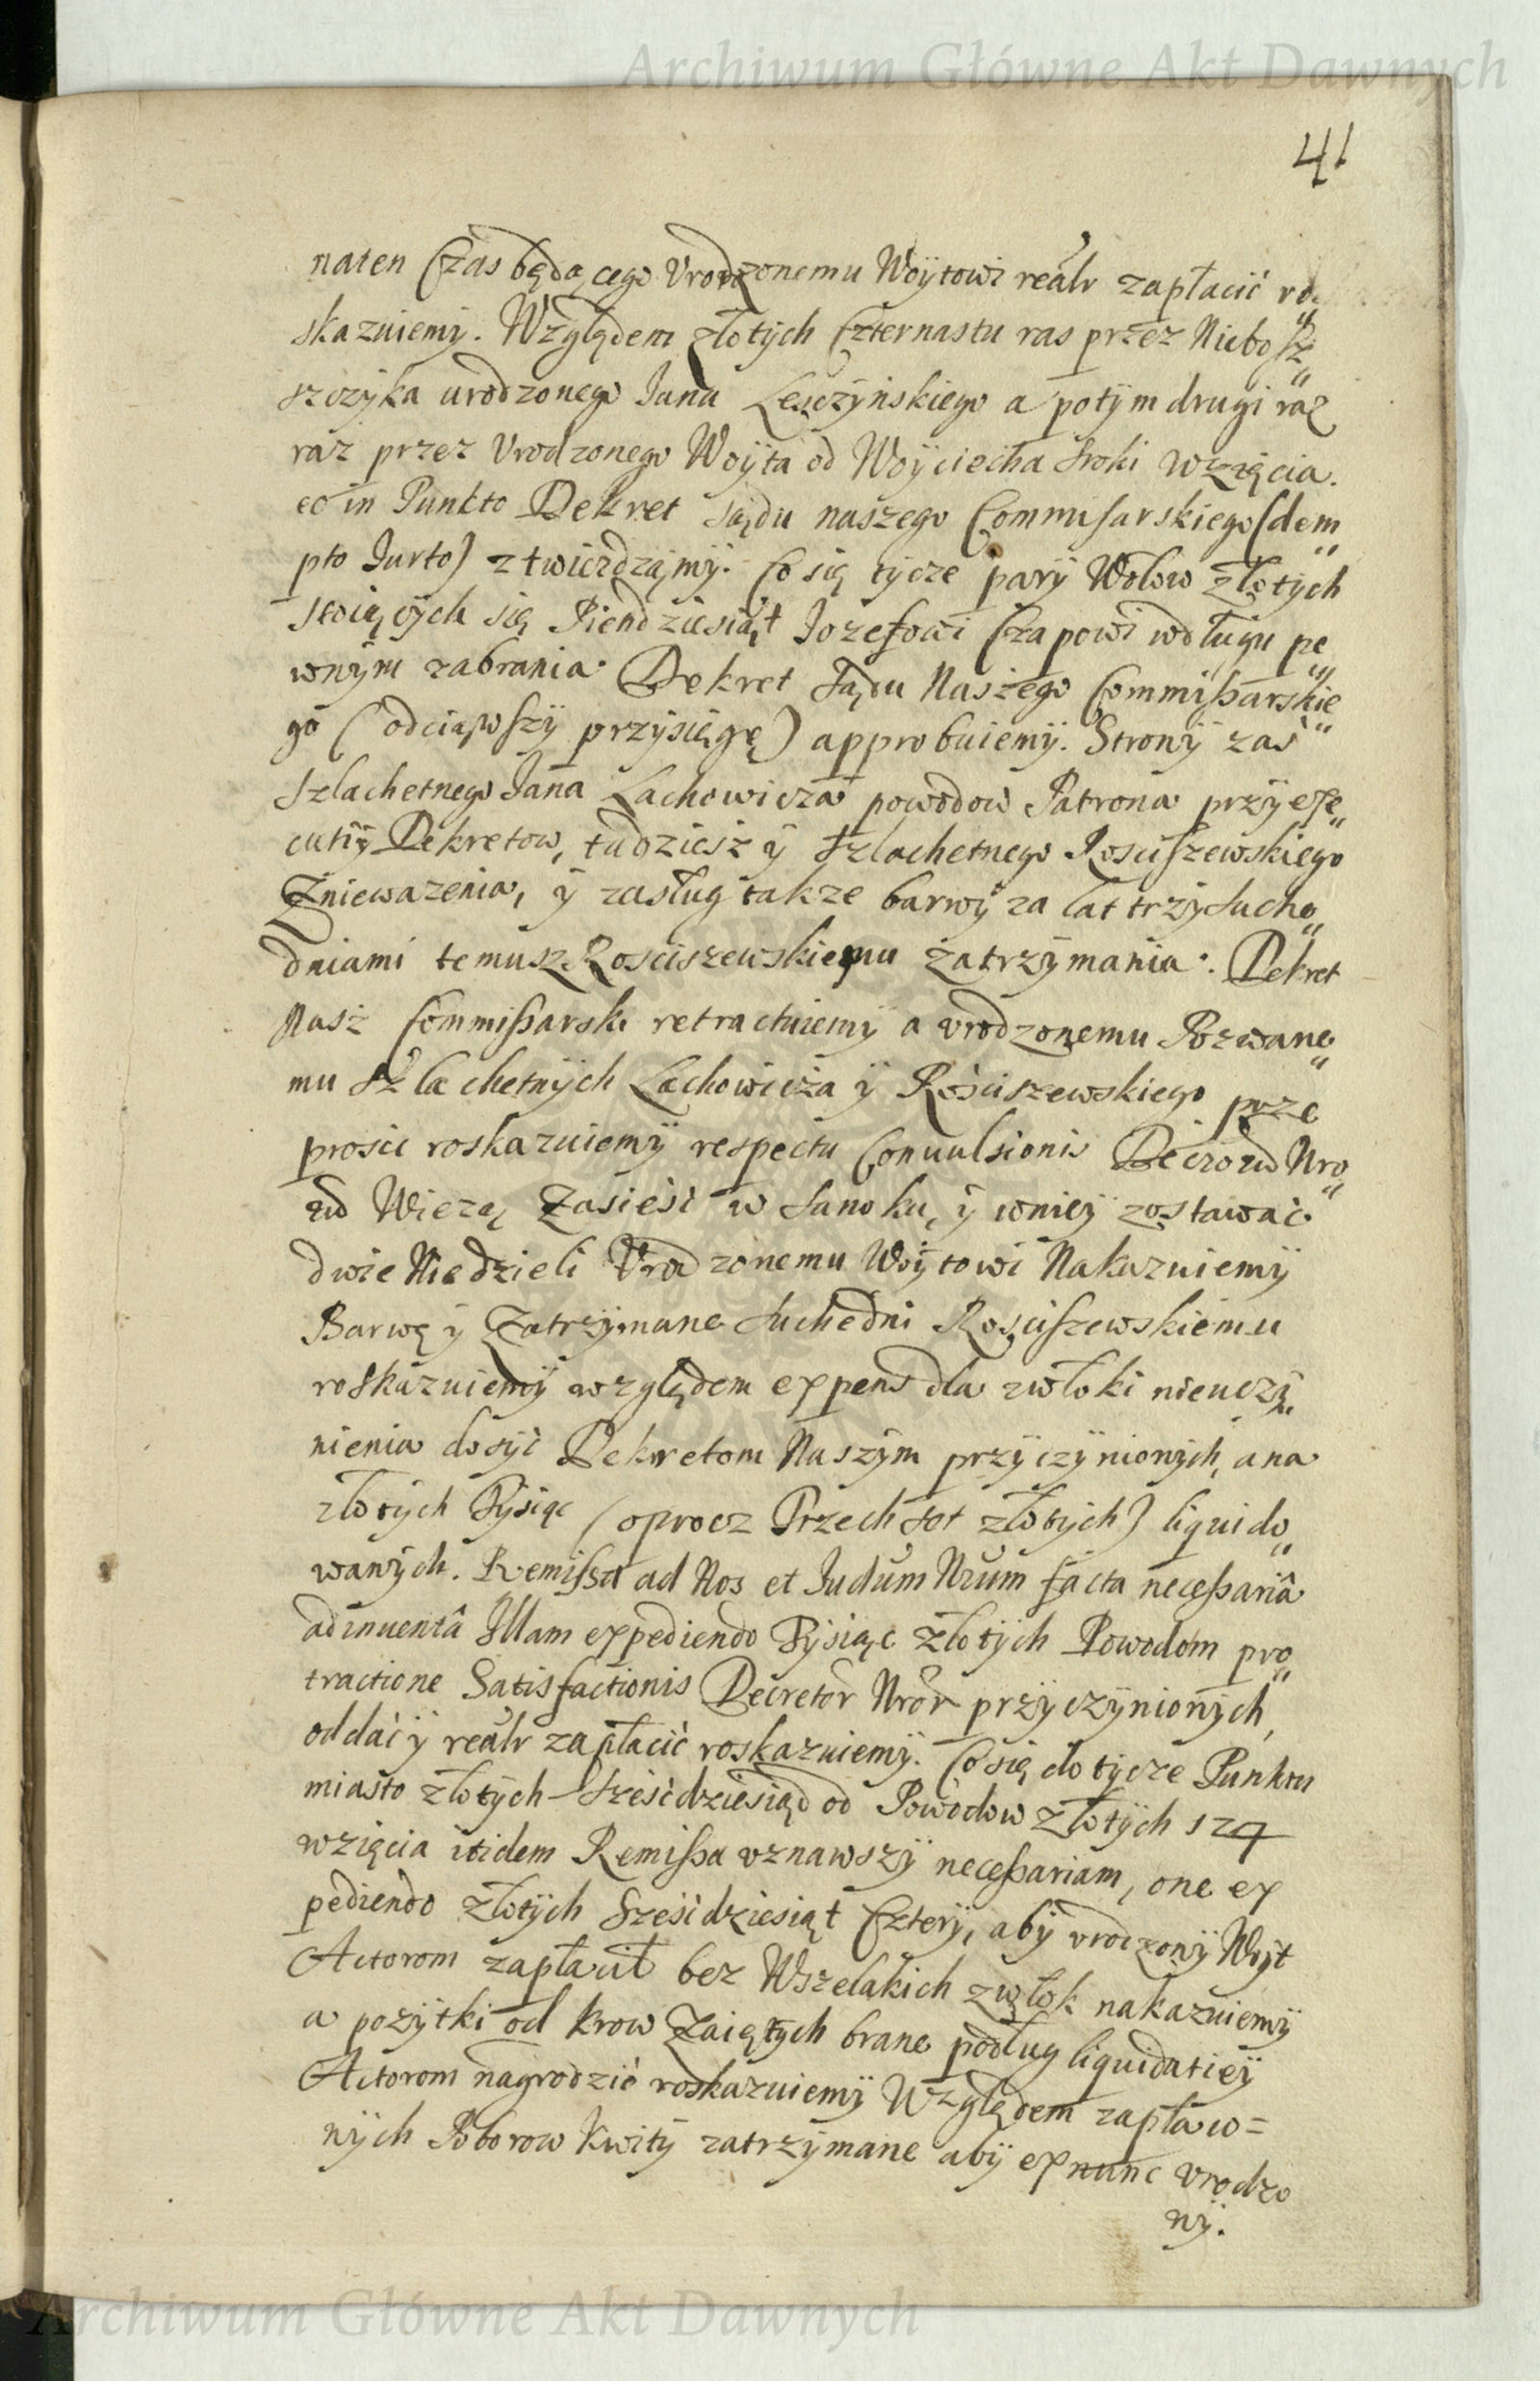 Archiwum Główne Akt Dawnych
41
naten Czas będącego Vrodzonemu Woÿtowi realr zapłacić ro„
skazuiemÿ. Względem złotÿch Czternastu ras przez Niebosz„
szczÿka urodzonego Jana Leszczÿńskiego a potÿm drugi raz
raz przez Vrodzonego Woÿta od Woÿciecha Sroki wzięcia.
eo in Punkto Dekret sądu naszego Commisarskiego (dem„
pto Jurto) ztwierdzamÿ. Co się tÿcze parÿ Wołow złotÿch
stoiącÿch się Piendziesiąt Jozefowi Czapowi wdługu pe„
wnÿm zabrania Dekret Sądu Naszego Commißarskie„
go (odciąwszÿ przÿsięgę) approbuiemÿ. Stronÿ zaś
Szlachetnego Jana Lachowicza powodow Patrona przÿ exe„
cutiÿ Dekretow, tudziesz ÿ Szlachetnego Rosciszewskiego
Zniewazenia, ÿ zasług takze barwÿ za lat trzÿ Sucho„
dniami temusz Rosciszewskiemu zatrzÿmania. Dekret
Nasz Commißarski retractuiemÿ a vrodzonemu Pozwane„
mu Szlachetnÿch Lachowicza ÿ Rościszewskiego prze
prosic roskazuiemÿ respectu Conuulsionis Decrorũ Nro„
rũ Wiezą Zasieść w Sanoku, ÿ wnieÿ zostawać
dwie Niedzieli Vrodzonemu Woÿtowi Nakazuiemÿ
Barwę ÿ Zatrzÿmane Suchedni Rosciszewskiemu
roskazuiemÿ względem expens dla zwłoki nieuczÿ„
nienia dosÿć Dekretom Naszÿm przÿczÿnionÿch, a na
złotÿch Tÿsiąc (oprocz Trzech set złotÿch) liquido„
wanÿch. Remissa ad Nos et Judum Nrum facta neceßariâ
adinuentâ Illam expediendo Tÿsiąc złotÿch Powodom pro„
tractione Satisfactionis Decretor Nror przÿczÿnionÿch,
oddać ÿ realr zapłacić roskazuiemÿ. Co się dotÿcze Punktu
miasto złotÿch Sześćdziesiąd od Powodow złotÿch 124
wzięcia itidem Remißa vznawszÿ neceßariam, one ex
pediendo złotÿch Sześćdziesiąt Czterÿ, abÿ vrodzonÿ Woÿt
Actorom zapłacił bez Wszelakich zwłok nakazuiemÿ
a pozÿtki od krow Zaiętÿch brane podług liquidatieÿ
Actorom nagrodzić roskazuiemÿ Względem zapław=
nÿch Poborow kwitÿ zatrzÿmane abÿ exnunc vrodzo
nÿ.
Archiwum Główne Akt Dawnych